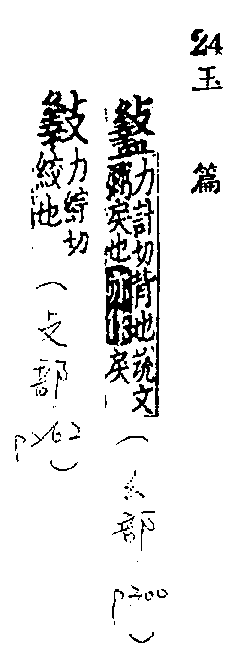 24 玉篇
盭 力計切背也說文
弼戾也亦作戾
(幺部 p200)
力切
絞也
(攴部 p262)